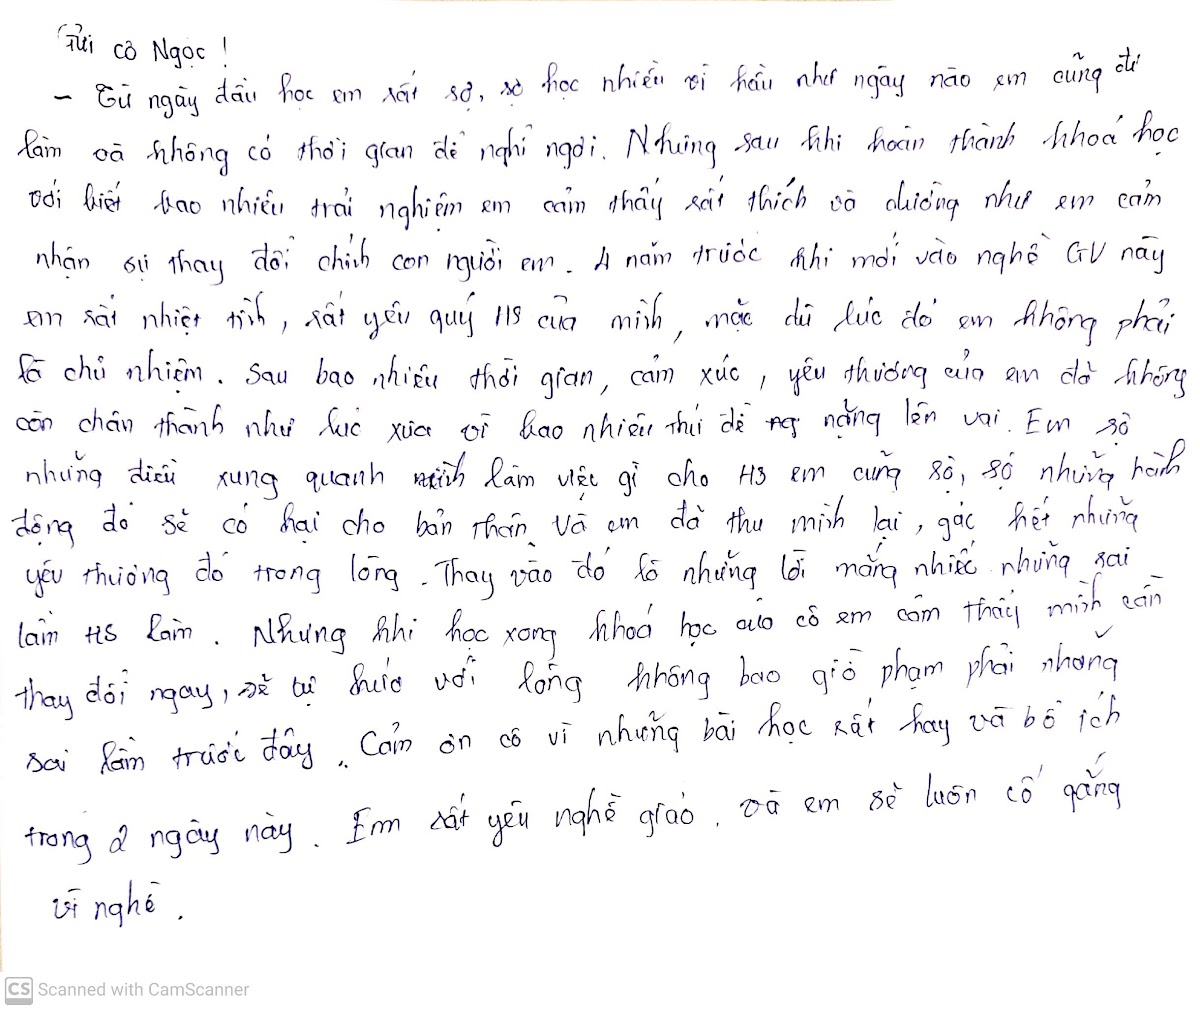 Gửi cô Ngọc !
- Từ ngày đầu học em rất sợ, sợ học nhiều vì hầu như ngày nào em cũng đi
làm và không có thời gian để nghỉ ngơi. Nhưng sau khi hoàn thành khoá học
với biết bao nhiêu trải nghiệm em cảm thấy rất thích và dường như em cảm
nhận sự thay đổi chính con người em. 4 năm trước khi mới vào nghề GV này
em rất nhiệt tình, rất yêu quý HS của mình, mặc dù lúc đó em không phải
là chủ nhiệm. Sau bao nhiêu thời gian, cảm xúc, yêu thương của em đã không
còn chân thành như lúc xưa vì bao nhiêu thứ đè nặng lên vai. Em sợ
những điều xung quanh mình làm việc gì cho HS em cũng sợ, sợ những hành
động đó sẽ có hại cho bản thân và em đã thu mình lại, gác hết những
yêu thương đó trong lòng. Thay vào đó là những lời mắng nhiếc những sai
lầm HS làm. Nhưng khi học xong khoá học của cô em cảm thấy mình cần
thay đổi ngay, sẽ tự hứa với lòng không bao giờ phạm phải những
sai lầm trước đây. Cảm ơn cô vì những bài học rất hay và bổ ích
trong 2 ngày này. Em rất yêu nghề giáo. và em sẽ luôn cố gắng
vì nghề.
CS Scanned with CamScanner